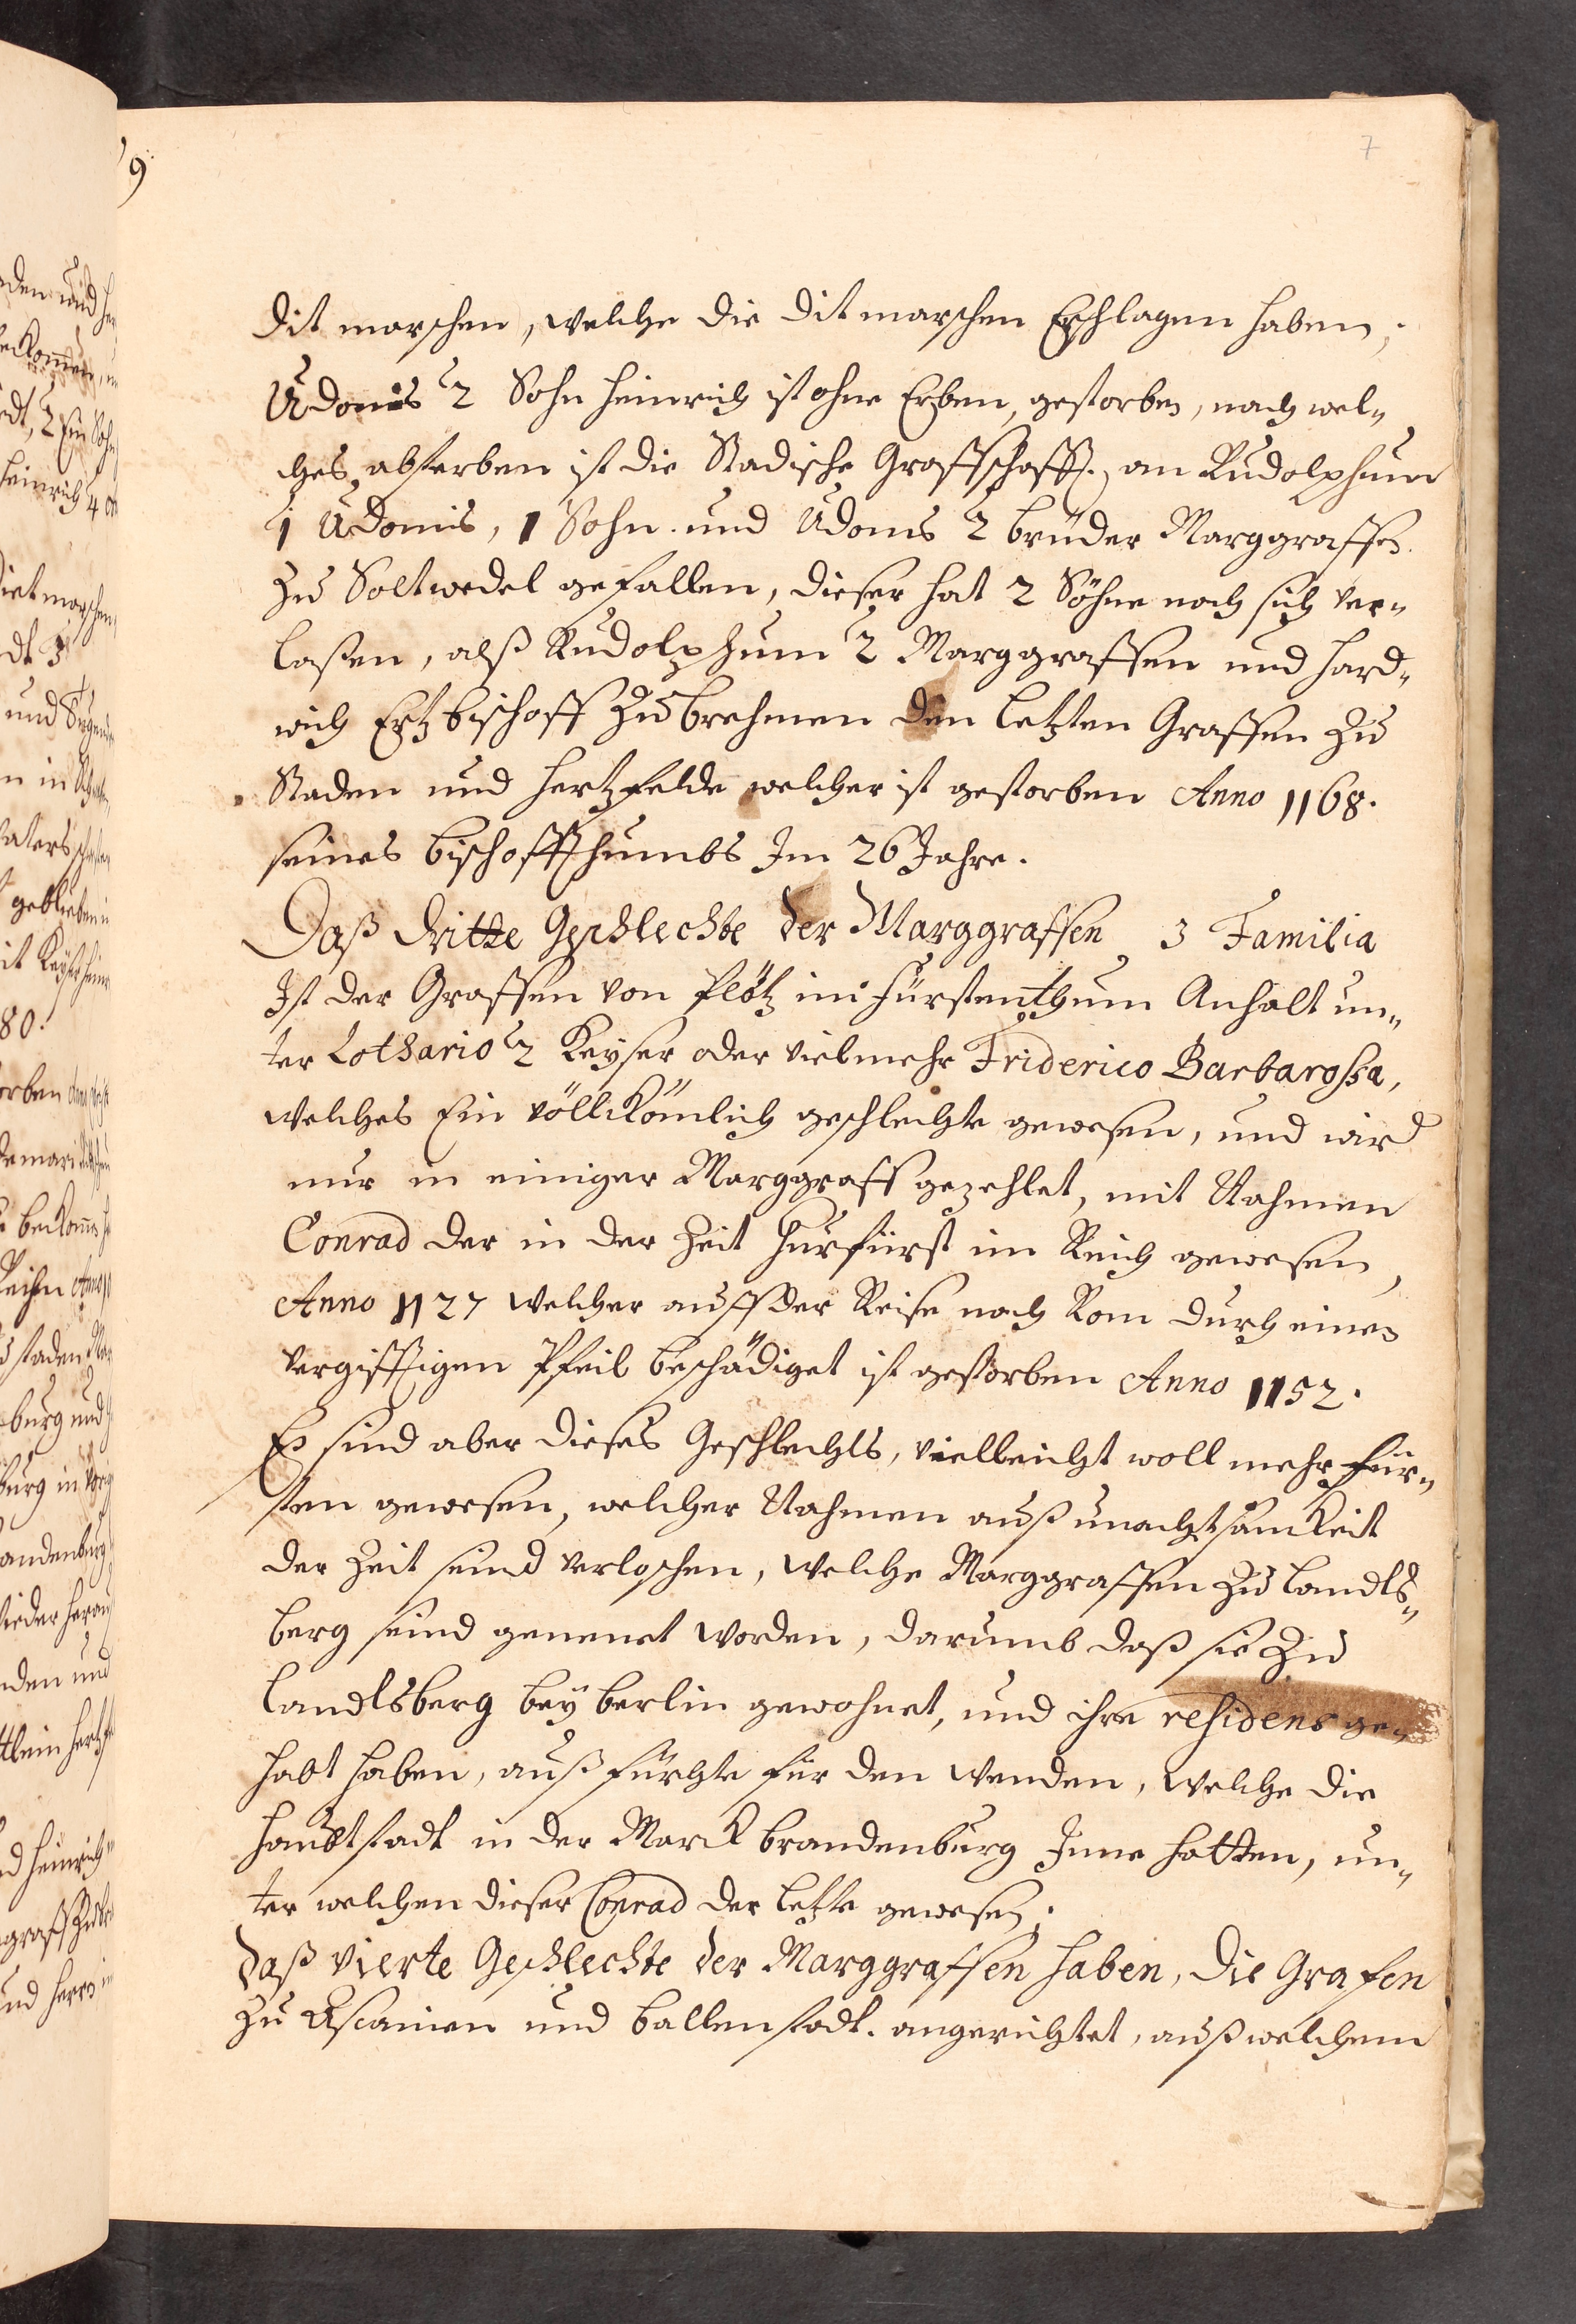 7
Ditmarschen, welche die Ditmarschen Erschlagen haben;
Udonis 2 Sohn Heinrich ist ohne Erben, gestorben, nach wel„
ches absterben ist die Stadische Graffschafft, an Rudolphum
1 Udonis, 1 Sohn und Udonis 2 bruder Marggraffen
zu Soltwedel gefallen, dieser hat 2 Söhne nach sich ver„
laßen, alß Rudolphum 2 Marggraffen und Hard„
wich Ertzbischoff zu brehmen den letzten Graffen zu
Staden und Hertzfelde welcher ist gestorben Anno 1168.
seines bischoffthumbs Im 26 Jahre.
Daß dritte Geschlechte der Marggraffen 3 Familia
Ist der Graffen von Plötz im Fürstenthum Anhalt un„
ter Lothario 2 Keyser oder vielmehr Friderico Barbarossa,
welches Ein völlkömlich geschlechte gewesen, und wird
nur in einiger Marggraff gezehlet, mit Nahmen
Conrad der in der Zeit Hurfürst im Reich gewesen,
Anno 1127 welcher auff der Reise nach Rom durch einen
vergifftigen Pfeil beschädiget ist gestorben Anno 1152.
Es sind aber dieses Geschlechts, vielleicht woll mehr für„
sten gewesen, welcher Nahmen auß unachtsamkeit
der Zeit seind verloschen, welche Marggraffen zu Landts„
berg seind genenet worden, darumb daß sie zu
Landtsberg bey berlin gewohnet, und ihre residens ge„
habt haben, auß fürchte für den Wenden, welche die
Haubtstadt in der Marck brandenburg Inne hatten, un„
ter welchen dieser Conrad der letzte gewesen;
Daß vierte Geschlechte der Marggraffen haben, die Grafen
zu Ascanien und ballenstadt. angerichtet, auß welchem